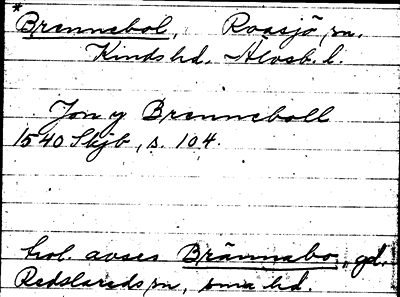 *Brennebol, Roasjö sn.
Kinds hd. Älvsb. l.
Jon y Brenneboll
1540 Skjb, s. 104.
trol. avses Brännabo, gd.
Redslareds sn, sma hd.